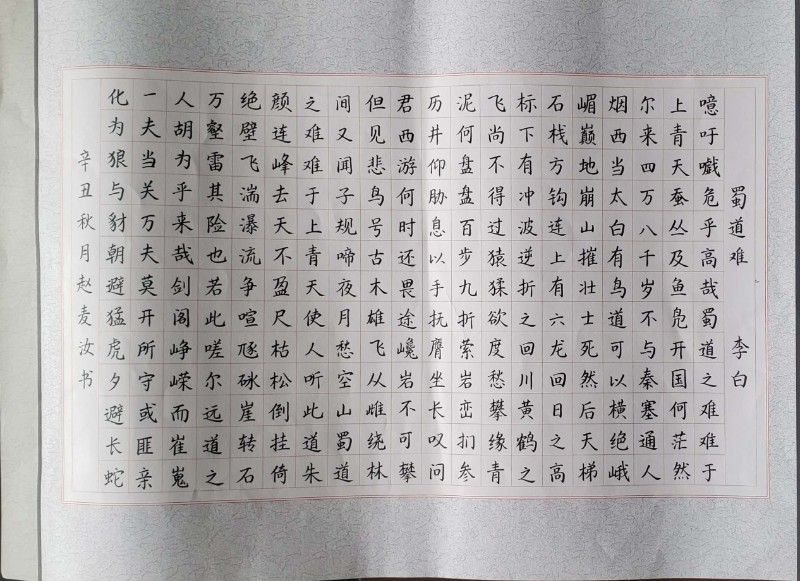 蜀道难 李白
噫吁嚱危乎高哉蜀道之难难于
上青天蚕丛及鱼凫开国何茫然
尔来四万八千岁不与秦塞通人
烟西当太白有鸟道可以横绝峨
嵋巅地崩山摧壮士死然后天梯
石栈方钩连上有六龙回日之高
标下有冲波逆折之回川黄鹤之
飞尚不得过猿猱欲度愁攀缘青
泥何盘盘百步九折萦岩峦扪参
历井仰胁息以手抚膺坐长叹问
君西游何时还畏途巉岩不可攀
但见悲鸟号古木雄飞从雌绕林
间又闻子规啼夜月愁空山蜀道
之难难于上青天使人听此道朱
颜连峰去天不盈尺枯松倒挂倚
绝壁飞湍瀑流争喧豗砯崖转石
万壑雷其险也若此嗟尔远道之
人胡为乎来哉剑阁峥嵘而崔嵬
一夫当关万夫莫开所守或匪亲
化为狼与豺朝避猛虎夕避长蛇
辛丑秋月赵麦汝书